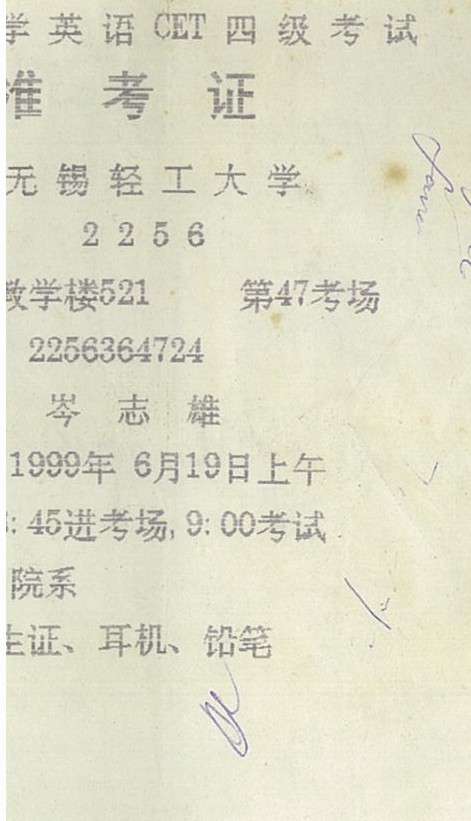 学英语CET四级考试
准考证
无锡轻工大学
2256
教学楼521 第47考场
2256364724
岑志雄
1999年 6月19日上午
:45进考场,9:00考试
院系
生证、耳机、铅笔